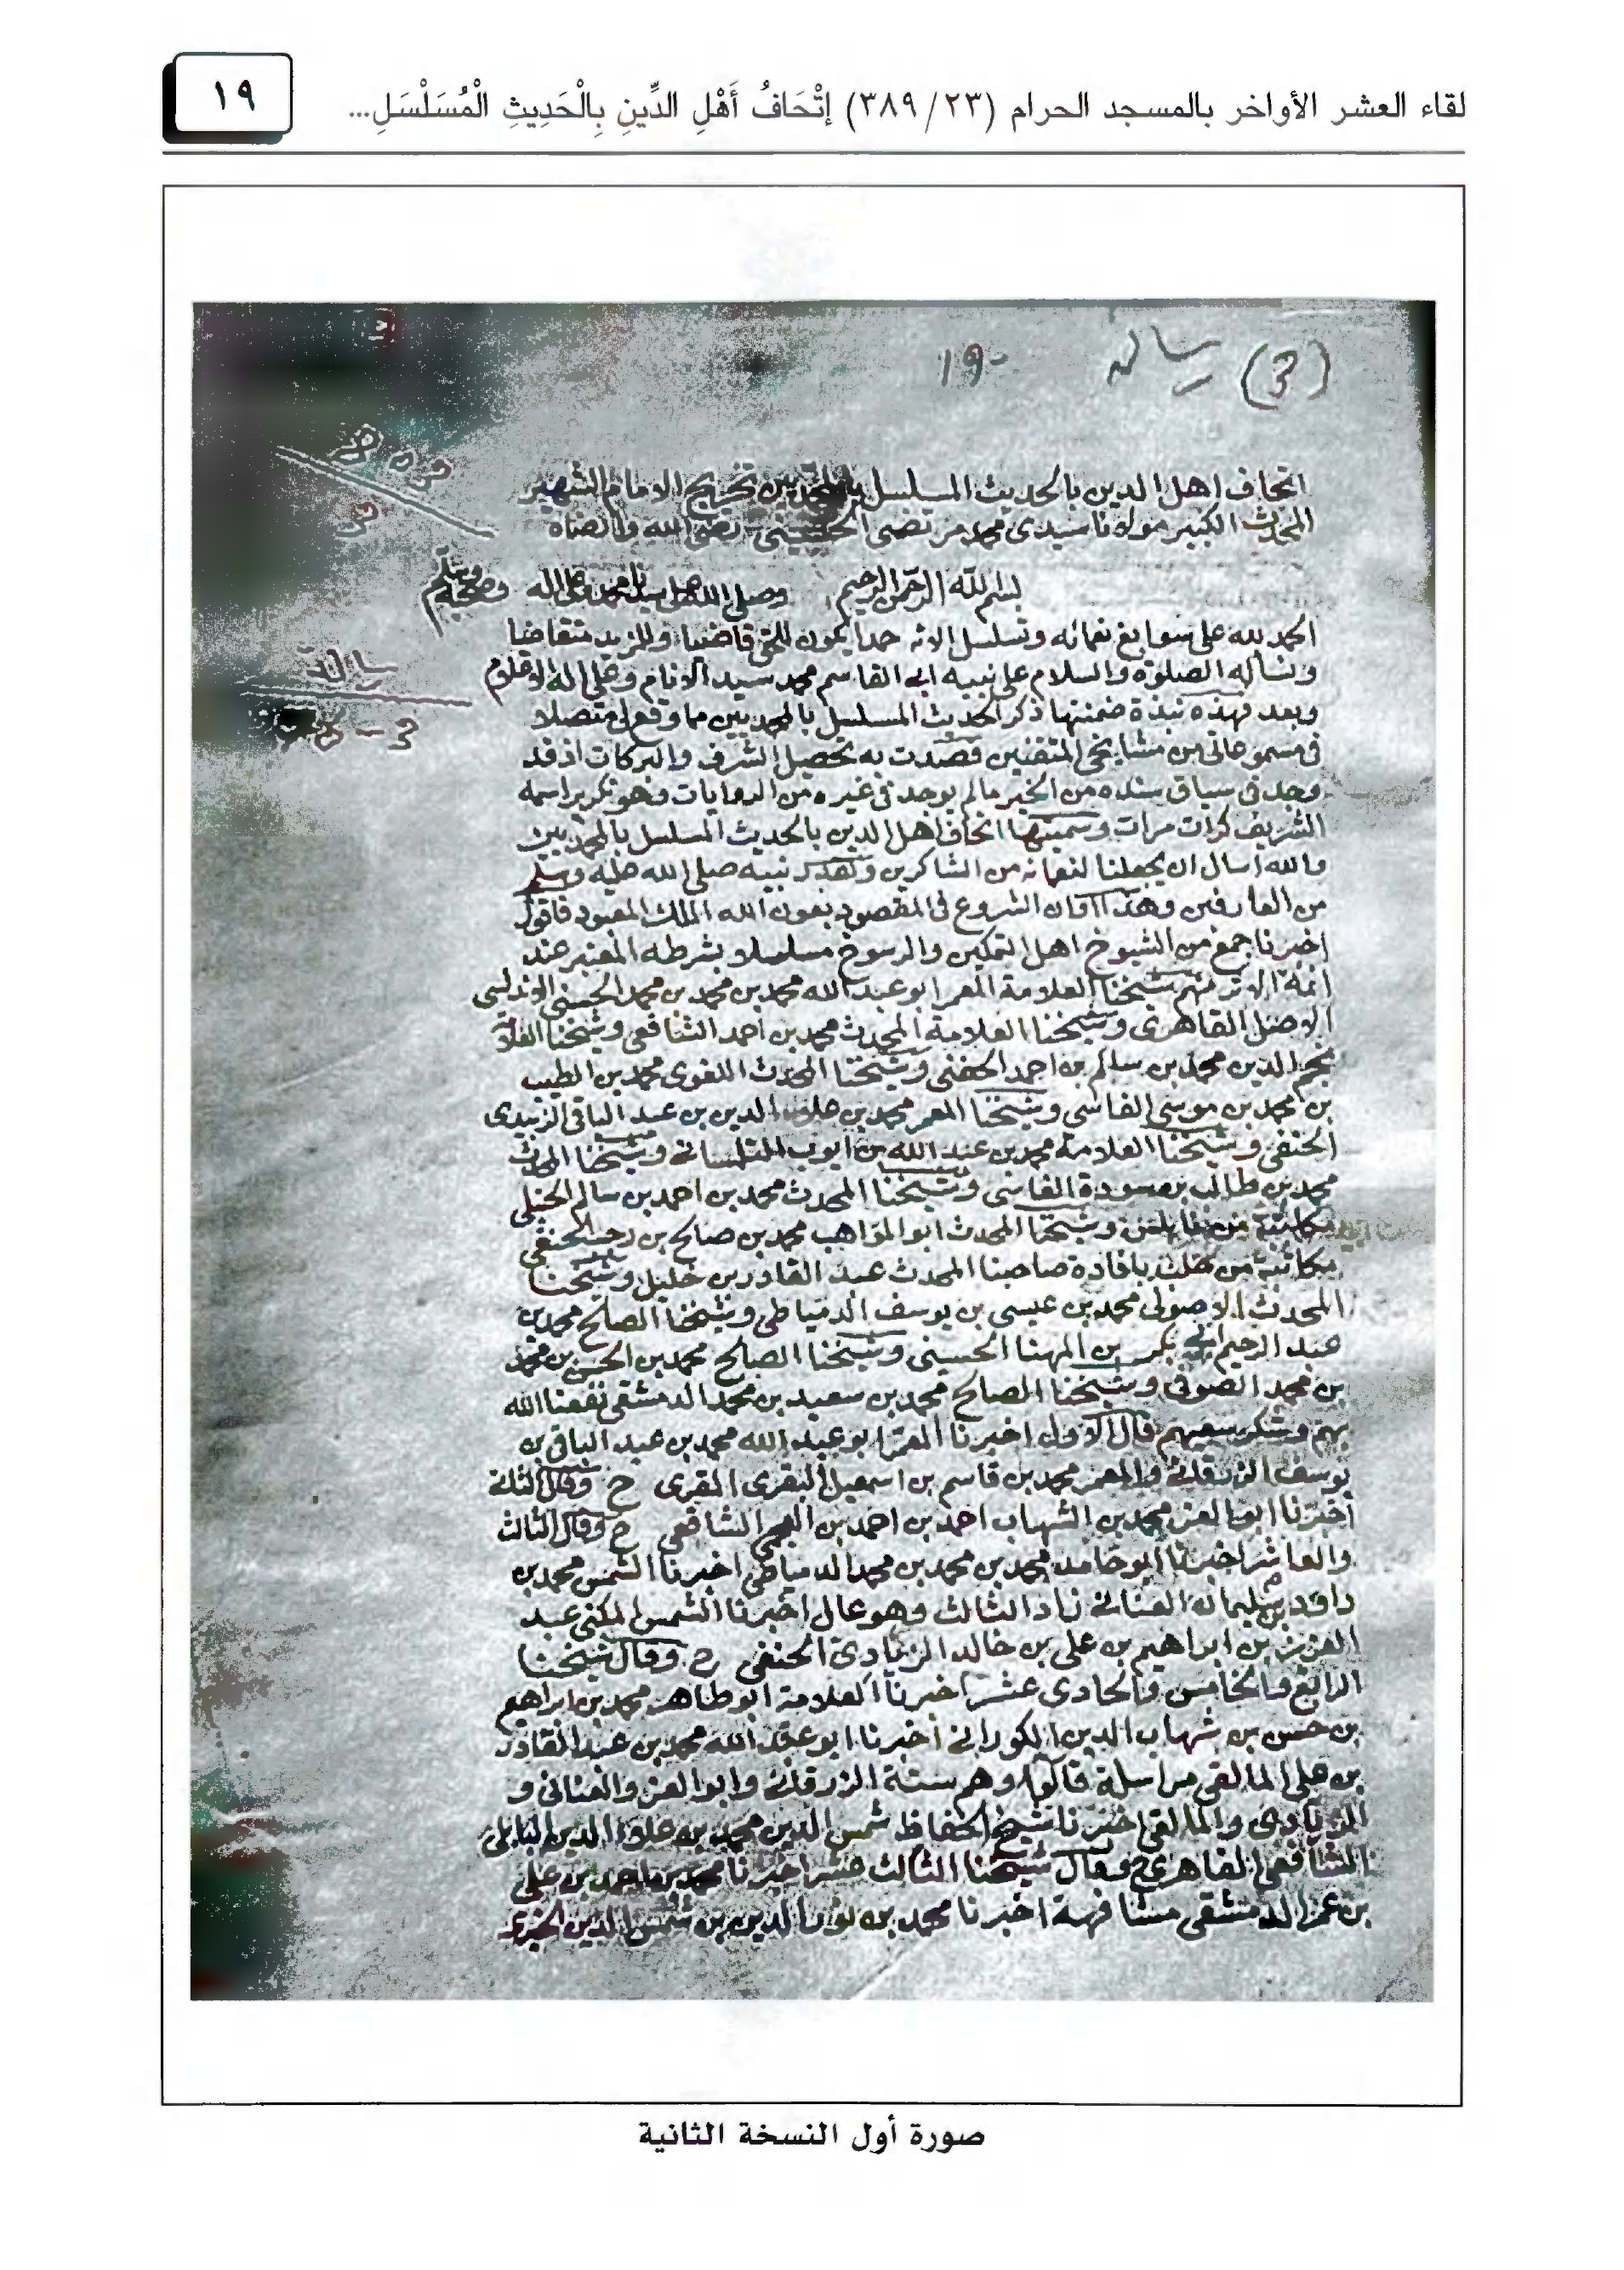 لقاء العشر الأواخر بالمسجد الحرام (٢٣/ ٣٨٩) إتْحَافُ أَهْلِ الدِّينِ بِالْحَدِيثِ الْمُسَلْسَلِ...
١٩
(3) رسالة ١٩٠
اتحاف اهل الدين بالحديث المسلسل بالمحمديين تخريج الامام الشهير
المحدث الكبير مولانا سيدى محمد مرتضى الحسينى رضى الله
بسم الله الرحمن الرحيم وصلى الله على سيدنا محمد وعلى اله وصحبه وسلم
الحمد لله على سوابغ نعمائه وتسلسل الائه حمدا يكون للحق قاضيا وللمزيد متقاضيا
ونساله الصلوة والسلام على نبيه ابى القاسم محمد سيد الانام وعلى اله الاعلام
وبعد فهذه نبذة ضمنتها ذكر الحديث المسلسل بالمحمديين مما وقع لى متصلا
فى مسموعاتى من مشايخى المتقنين قصدت به تحصيل الشرف والبركات اذ قد
وجد فى سياق سنده من الخير مالم يوجد فى غيره من الروايات وهو تكرير اسمه
الشريف كرات مرات وسميتها اتحاف اهل الدين بالحديث المسلسل بالمحمديين
والله اسال ان يجعلنا لنعمائه من الشاكرين ونبيه صلى الله عليه وسلم
من العارفين وهذا اوان الشروع فى المقصود بعون الله الملك المعبود فاقول
اخبرنا جمع من الشيوخ اهل التمكين والرسوخ مسلسلا بشرطه المعتبر عند
ائمة الاثر منهم شيخنا العلامة المعمر ابو عبد الله محمد بن محمد بن محمد الحسنى الاندلسى
الاصل القاهرى وشيخنا العلامة المحدث محمد بن احمد الشافعى وشيخنا العلامة
نجم الدين محمد بن سالم بن احمد الحفنى وشيخنا المحدث اللغوى محمد بن الطيب
بن محمد بن موسى الفاسى وشيخنا المعمر محمد بن علاء الدين بن عبد الباقى الزبيدى
الحنفى وشيخنا العلامة محمد بن عبد الله بن ايوب التلمسانى وشيخنا المحدث
محمد بن طالب بن سودة الفاسى وشيخنا المحدث محمد بن احمد بن سالم الحنبلى
مكاتبة من نابلس وشيخنا المحدث ابو المواهب محمد بن صالح بن رجب الحنفى
مكاتبة من حلب بافادة صاحبنا المحدث عبد القادر بن خليل وشيخنا
المحدث الاصولى محمد بن عيسى بن يوسف الدمياطى وشيخنا الصالح محمد بن
عبد الرحيم بن المهنا الحسينى وشيخنا الصالح محمد بن الحسن بن محمد
بن محمد الصوفى وشيخنا الصالح محمد بن سعيد بن محمد الدمشقى نفعنا الله
بهم وشكر سعيهم قال الاول اخبرنا المعمر ابو عبد الله محمد بن عبد الباقى بن
يوسف الزرقانى والمعمر محمد بن قاسم بن اسمعيل البقرى المقرى ح وقال الثانى
اخبرنا ابو العز محمد بن الشهاب احمد بن احمد بن العجمى الشافعى ح وقال الثالث
والعاشر اخبرنا ابو حامد محمد بن محمد بن محمد الدمياطى اخبرنا الشمس محمد بن
داود بن سليمان العنانى زاد الثالث وهو عال اخبرنا الشمس المكنى عبد
العزيز بن ابراهيم بن على بن خالد الزيادى الحنفى ح وقال شيخنا
الرابع والخامس والحادى عشر اخبرنا العلامة ابو طاهر محمد بن ابراهيم
بن حسن بن شهاب الدين الكورانى اخبرنا ابو عبد الله محمد بن عبد القادر
بن على المالقى مراسلة قالوا وهم ستة الزرقانى وابو العز والعنانى و
الزيادى والمالقى اخبرنا شيخ الحفاظ شمس الدين محمد بن علاء الدين البابلى
الشافعى القاهرى ح وقال شيخنا الثالث عشر اخبرنا محمد بن احمد بن على
بن عمر الدمشقى مشافهة اخبرنا محمد بن نور الدين بن شمس الدين
صورة أول النسخة الثانية